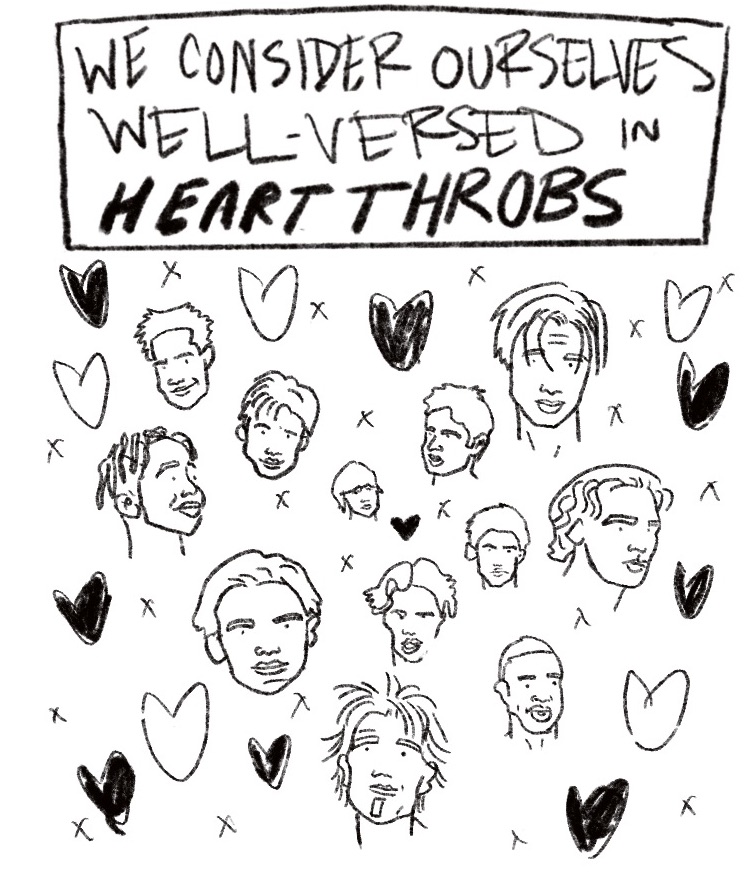 WE CONSIDER OURSELVES
WELL-VERSED IN
HEART THROBS